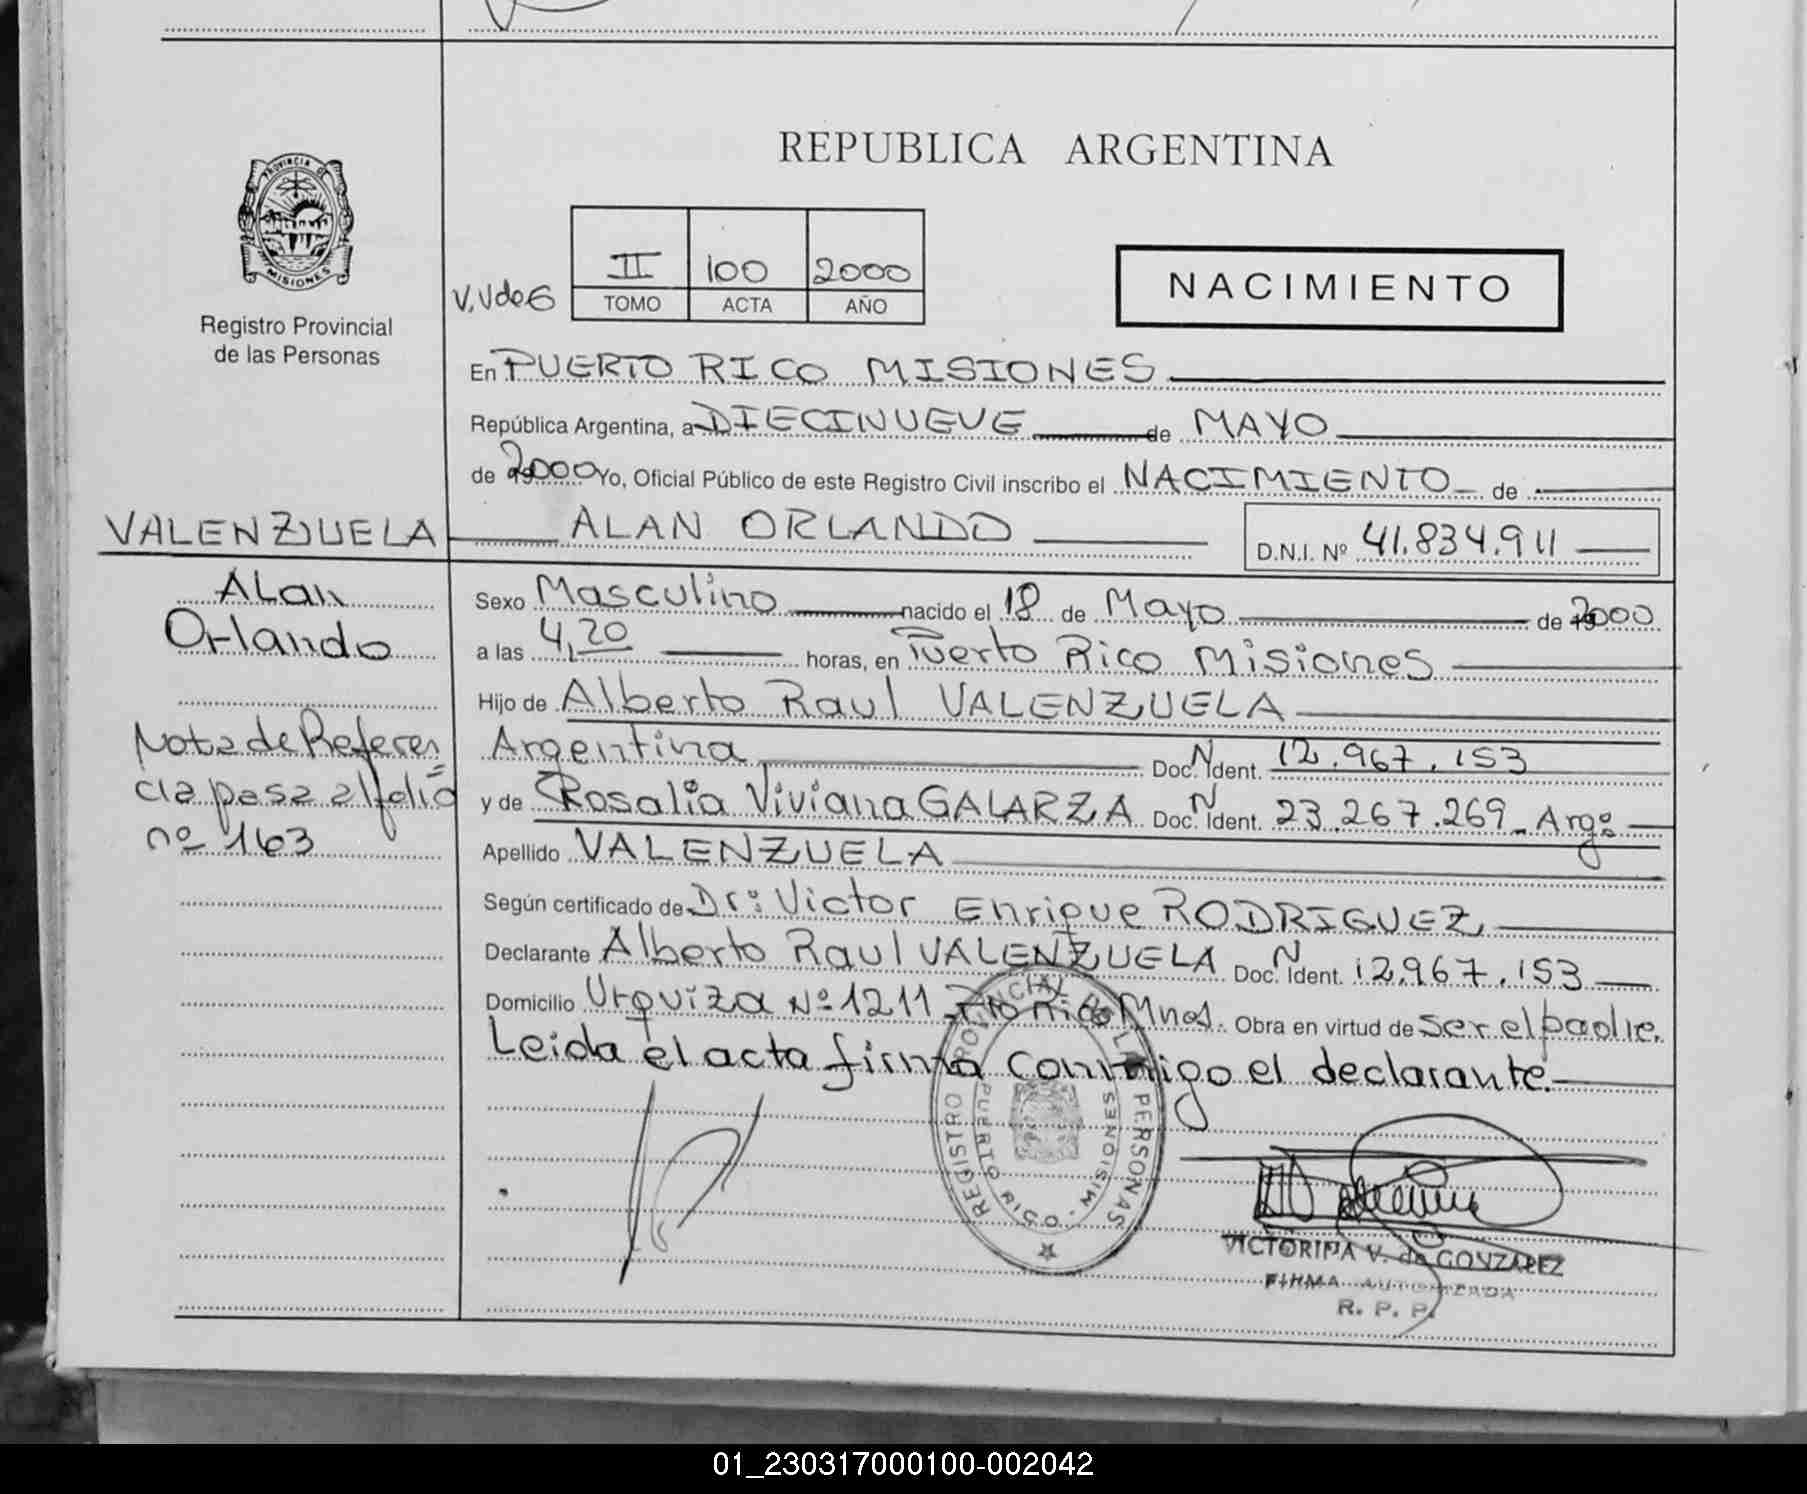 REPUBLICA ARGENTINA
PROVINCIA DE
MISIONES
Registro Provincial
de las Personas
V.V de G
II 100 2000
TOMO ACTA AÑO
NACIMIENTO
En PUERTO RICO MISIONES
República Argentina, a DIECINUEVE de MAYO
de 2000 Yo, Oficial Público de este Registro Civil inscribo el NACIMIENTO de
VALENZUELA ALAN ORLANDO D.N.I. Nº 41.834.911
Alan
Orlando
Sexo Masculino nacido el 18 de Mayo de 2000
a las 4,20 horas, en Puerto Rico Misiones
Hijo de Alberto Raul VALENZUELA
Argentina Doc. N Ident. 12.967.153
y de Rosalia Viviana GALARZA Doc. N Ident. 23.267.269 - Arg:
Nota de Referen
cia pasa al folio
nº 163
Apellido VALENZUELA
Según certificado de Dr: Victor Enrique RODRIGUEZ,
Declarante Alberto Raul VALENZUELA Doc. N Ident. 12.967.153
Domicilio Urquiza Nº 1211 Pto Rico Mnes. Obra en virtud de ser el padre.
Leida el acta firma conmigo el declarante.
REGISTRO PROVINCIAL DE LAS PERSONAS
PUERTO RICO - MISIONES
VICTORINA V. de GONZALEZ
FIRMA AUTORIZADA
R. P. P.
01_230317000100-002042